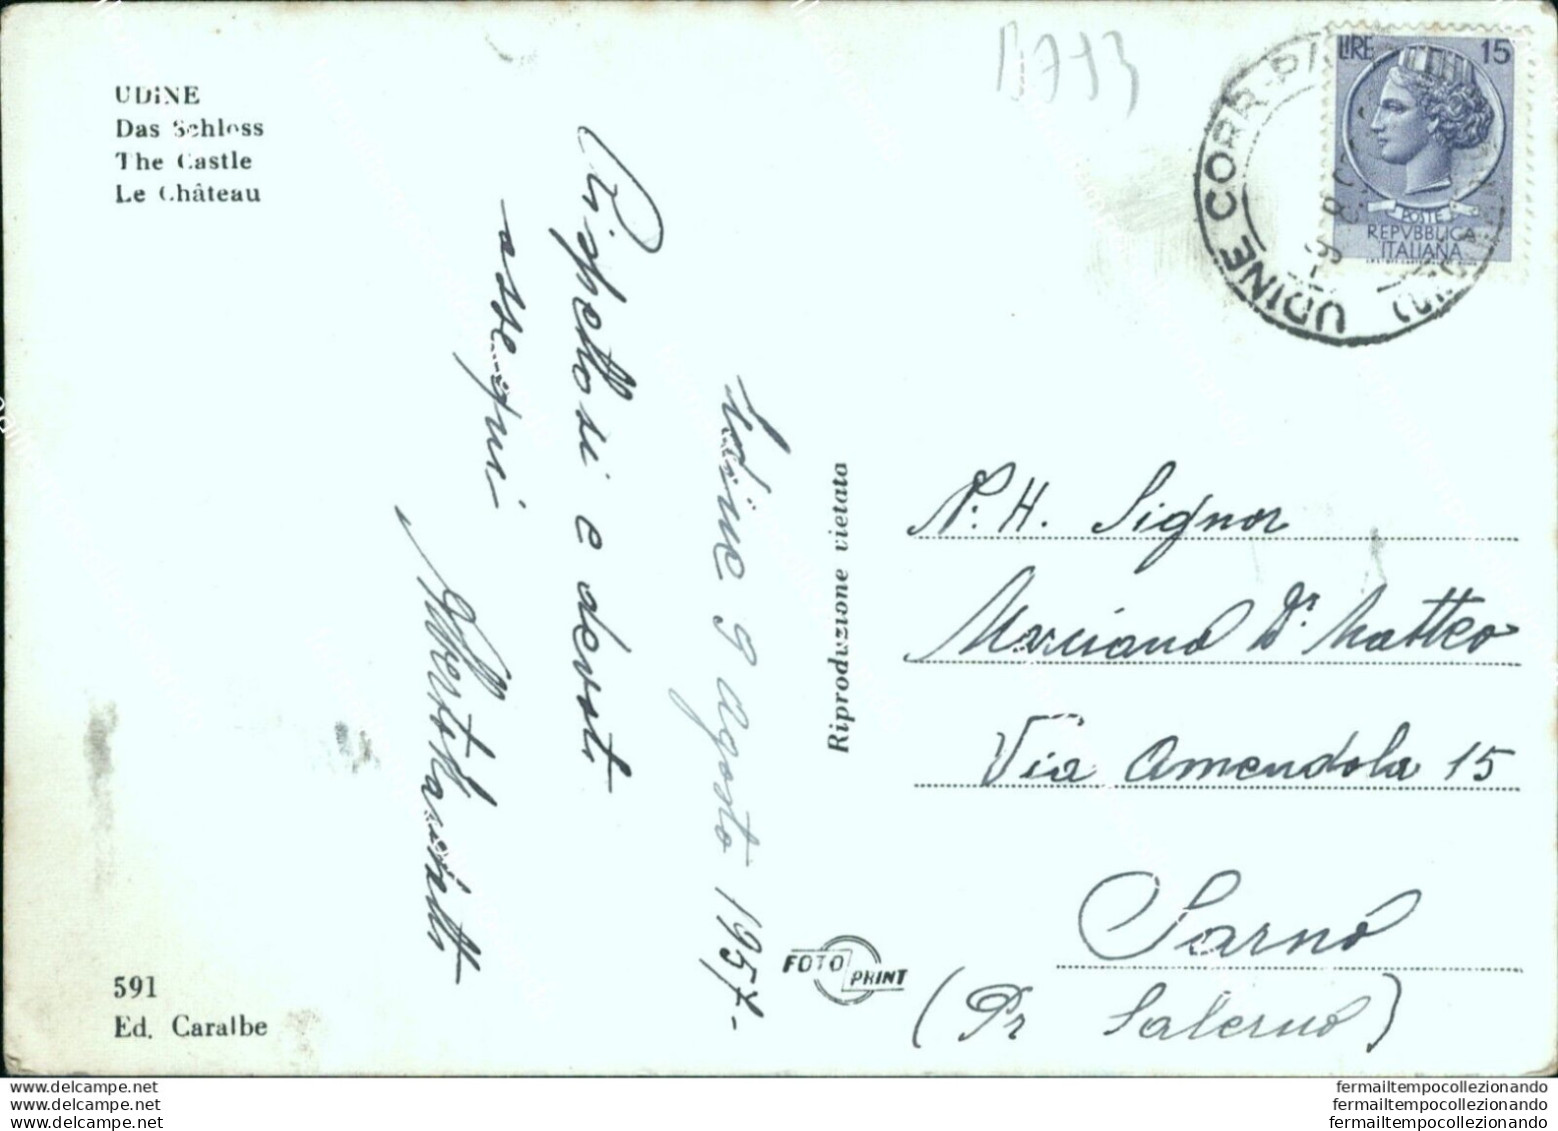 UDINE
Das Schloss
The Castle
Le Château
B793
LIRE 15
POSTE
REPVBBLICA
ITALIANA
UDINE CORR.
Udine 9 agosto 1957.
Rispettosi e devoti
ossequi
Riproduzione vietata
N. H. Signor
Marciano Dr. Matteo
Via Amendola 15
Sarno
(Pr Salerno)
FOTO PRINT
591
Ed. Caralbe
www.delcampe.net
www.delcampe.net
www.delcampe.net
fermailtempocollezionando
fermailtempocollezionando
fermailtempocollezionando